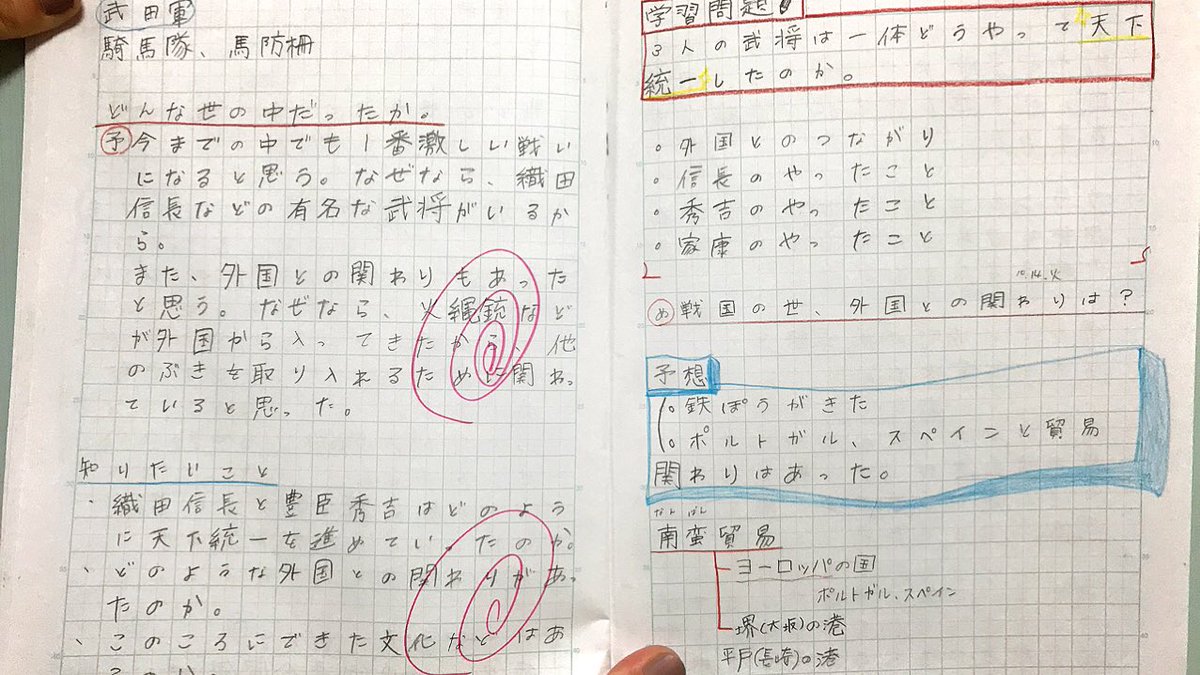 武田軍
騎馬隊、馬防柵
どんな世の中だったか。
予 今までの中でも1番激しい戦い
になると思う。なぜなら、織田
信長などの有名な武将がいるか
ら。
また、外国との関わりもあった
と思う。なぜなら、火縄銃など
が外国から入ってきたから、他
のぶきを取り入れるために関わっ
ていると思った。
知りたいこと
・織田信長と豊臣秀吉はどのよう
に天下統一を進めていったのか。
・どのような外国との関わりがあっ
たのか。
・このころにできた文化などはあ
るのか。
学習問題
3人の武将は一体どうやって天下
統一したのか。
。外国とのつながり
。信長のやったこと
。秀吉のやったこと
。家康のやったこと
10.14.火
め 戦国の世、外国との関わりは?
予想
。鉄ぽうがきた
。ポルトガル、スペインと貿易
関わりはあった。
なんばん
南蛮貿易
ヨーロッパの国
ポルトガル、スペイン
堺(大坂)の港
平戸(長崎)の港